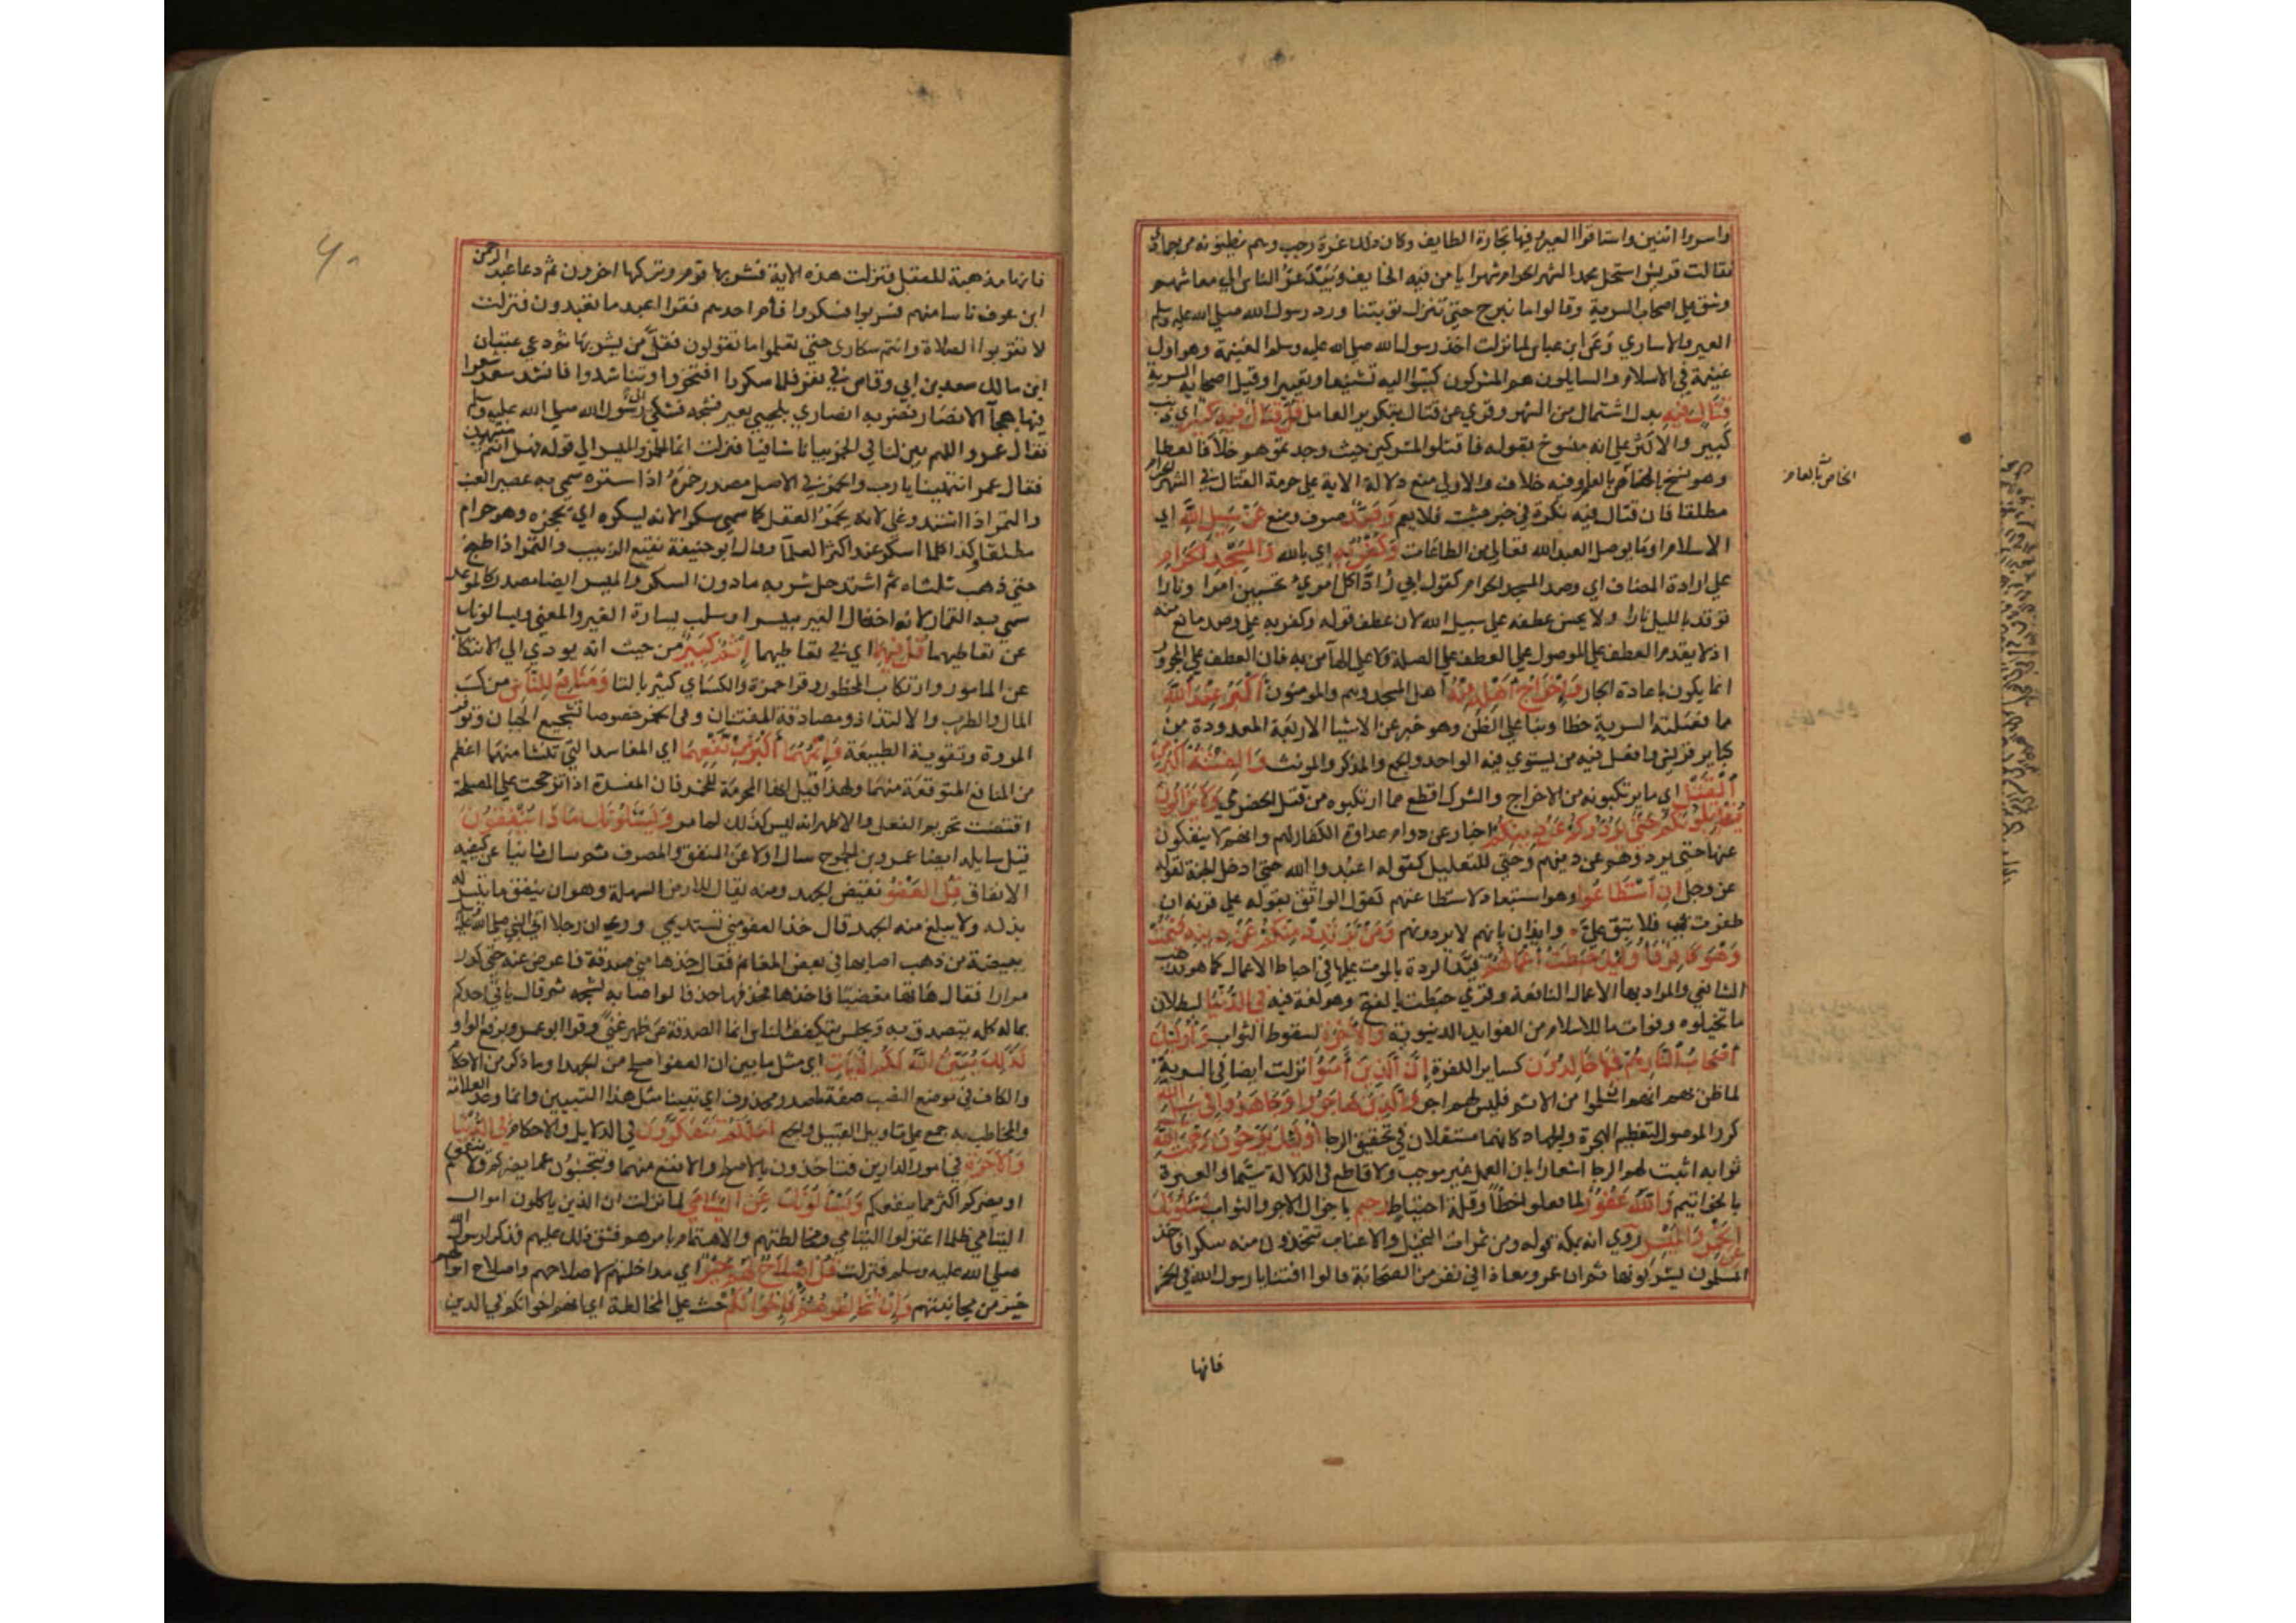 واسروا اثنين واستاقوا العير وفيها تجارة الطايف وكان ذلك غرة رجب وهم يظنونه من جمادى
فقالت قريش استحل محمد الشهر الحرام شهرا يامن فيه الخايف ويبذعر الناس الي معاشهم
وشق علي اصحاب السرية وقالوا ما نبرح حتي تنزل توبتنا ورد رسول الله صلي الله عليه وسلم
العير والاساري وعن ابن عباس لما نزلت اخذ رسول الله صلي الله عليه وسلم الغنيمة وهو اول
غنيمة في الاسلام والسايلون هم المشركون كتبوا اليه تشنيعا وتعييرا وقيل اصحاب السرية
قِتَالٍ فِيهِ بدل اشتمال من الشهر وقري عن قتال بتكرير العامل قُلْ قِتَالٌ فِيهِ كَبِيرٌ اي ذنب
كبير والاكثر علي انه منسوخ بقوله فاقتلوا المشركين حيث وجدتموهم خلافا لعطا
وهو نسخ الخاص بالعام وفيه خلاف والاولي منع دلالة الاية علي حرمة القتال في الشهر الحرام
مطلقا فان قتال فيه نكرة في خبر مثبت فلا يعم وَصَدٌّ صرف ومنع عَنْ سَبِيلِ اللَّهِ اي
الاسلام او ما يوصل العبد الله تعالي من الطاعات وَكُفْرٌ بِهِ اي بالله وَالْمَسْجِدِ الْحَرَامِ
علي ارادة المضاف اي وصد المسجد الحرام كقول ابي دُؤاد اكل امريٍ تحسبين امرا ونارا
توقد بالليل نارا ولا يحسن عطفه علي سبيل الله لان عطف قوله وكفر به علي وصد مانع منه
اذ لا يقدم العطف علي الموصول علي العطف علي الصلة ولا علي الهآ من به فان العطف علي المجرور
انما يكون باعادة الجار وَإِخْرَاجُ أَهْلِهِ مِنْهُ اهل المسجد وهم والمومنون أَكْبَرُ عِنْدَ اللَّهِ
مما فعلته السرية خطا وبنا علي الظن وهو خبر عن الاشيا الاربعة المعدودة من
كباير قريش وافعل فيه من يستوي فيه الواحد والجمع والمذكر والمونث وَالْفِتْنَةُ أَكْبَرُ مِنَ
الْقَتْلِ اي ما يرتكبونه من الاخراج والشرك افظع مما ارتكبوه من قتل الحضرمي وَلَا يَزَالُونَ
يُقَاتِلُونَكُمْ حَتَّى يَرُدُّوكُمْ عَنْ دِينِكُمْ اخبار عن دوام عداوة الكفار لهم وانهم لا ينفكون
عنها حتي يردوهم عن دينهم وحتي للتعليل كقولك اعبد والله حتي ادخل الجنة لقوله
عز وجل إِنِ اسْتَطَاعُوا وهو استبعاد لاستطاعتهم كقول الواثق بقوته علي قرنه ان
ظفرت بي فلا تبق عليّ وايذان بانهم لا يردونهم وَمَنْ يَرْتَدِدْ مِنْكُمْ عَنْ دِينِهِ فَيَمُتْ
وَهُوَ كَافِرٌ فَأُولَئِكَ حَبِطَتْ أَعْمَالُهُمْ قيد الردة بالموت عليها في احباط الاعمال كما هو مذهب
الشافعي والمراد بها الاعمال النافعة وقري حبطت بالفتح وهو لغة فيه فِي الدُّنْيَا لبطلان
ما تخيلوه وفوات ما للاسلام من الفوايد الدنيوية وَالْآخِرَةِ لسقوط الثواب وَأُولَئِكَ
أَصْحَابُ النَّارِ هُمْ فِيهَا خَالِدُونَ كساير الكفرة إِنَّ الَّذِينَ آمَنُوا نزلت ايضا في السرية
لما ظن بهم انهم ان سلموا من الاثم فليس لهم اجر وَالَّذِينَ هَاجَرُوا وَجَاهَدُوا فِي سَبِيلِ اللَّهِ
كرر الموصول لتعظيم الهجرة والجهاد كانهما مستقلان في تحقيق الرجا أُولَئِكَ يَرْجُونَ رَحْمَتَ اللَّهِ
ثوابه اثبت لهم الرجا اشعارا بان العمل غير موجب ولا قاطع في الدلالة سيما والعبرة
بالخواتيم وَاللَّهُ غَفُورٌ لما فعلوا خطأ وقلة احتياط رَحِيمٌ باجزال الاجر والثواب يَسْأَلُونَكَ
عَنِ الْخَمْرِ وَالْمَيْسِرِ روي انه نزل بمكة قوله ومن ثمرات النخيل والاعناب تتخذون منه سكرا فاخذ
المسلمون يشربونها ثم ان عمر ومعاذ افي نفر من الصحابة قالوا افتنا يا رسول الله في الخمر
فانها
الخاص بالعام
فانها مذهبة للعقل فنزلت هذه الاية فشربها قوم وتركها اخرون ثم دعا عبد الرحمن
ابن عوف ناسا منهم فشربوا فسكروا فأم احدهم فقرا اعبد ما تعبدون فنزلت
لا تقربوا الصلاة وانتم سكاري حتي تعلموا ما تقولون فقل من يشربها ثم دعي عتبان
ابن مالك سعد بن ابي وقاص في نفر فلما سكروا افتخروا وتناشدوا فانشد سعد شعرا
فيها هجآ الانصار فضربه انصاري بلحيي بعير فشجه فشكي الي رسول الله صلي الله عليه وسلم
فقال عمر اللهم بين لنا في الخمر بيانا شافيا فنزلت انما الخمر والميسر الي قوله فهل انتم منتهون
فقال عمر انتهينا يا رب والخمر في الاصل مصدر خمره اذا ستره سمي به عصير العنب
والتمر اذا اشتد وغلي لانه يخمر العقل كما سمي سكرا لانه يسكره اي يحجزه وهو حرام
مطلقا وكذا كلما اسكر عند اكثر العلمآ وقال ابو حنيفة نقيع الزبيب والتمر اذا طبخ
حتي ذهب ثلثاه ثم اشتد حل شربه ما دون السكر والميسر ايضا مصدر كالموعد
سمي به القمار لانه اخذ مال الغير بيسر او سلب يسارة الغير والمعني يسالونك
عن تعاطيهما قُلْ فِيهِمَا اي في تعاطيهما إِثْمٌ كَبِيرٌ من حيث انه يودي الي الانتكاب
عن المامور وارتكاب المحظور وقرا حمزة والكساي كثير بالثا وَمَنَافِعُ لِلنَّاسِ من كسب
المال والطرب والالتذاذ ومصادقة الفتيان وفي الخمر خصوصا تشجيع الجبان وتوفر
المروة وتقوية الطبيعة وَإِثْمُهُمَا أَكْبَرُ مِنْ نَفْعِهِمَا اي المفاسد التي تنشا منهما اعظم
من المنافع المتوقعة منهما ولهذا قيل انها المحرمة للخمر فان المفسدة اذا ترجحت علي المصلحة
اقتضت تحريم الفعل والاظهر انه ليس كذلك لما مر وَيَسْأَلُونَكَ مَاذَا يُنْفِقُونَ
قيل سايله ايضا عمرو بن الجموح سال اولا عن المنفق والمصرف ثم سال ثانيا عن كيفية
الانفاق قُلِ الْعَفْوَ نقيض الجهد ومنه يقال للارض السهلة وهو ان ينفق ما تيسر له
بذله ولا يبلغ منه الجهد قال خذ العفو مني تستديمي وروي ان رجلا اتي النبي صلي الله عليه وسلم
ببيضة من ذهب اصابها في بعض المغانم فقال خذها مني صدقة فاعرض عنه حتي كرر
مرارا فقال هاتها مغضبا فاخذها فخذفها خذفا لو اصابه لشجه ثم قال ياتي احدكم
بماله كله يتصدق به ويجلس يتكفف الناس انما الصدقة عن ظهر غني وقرا ابو عمرو برفع الواو
كَذَلِكَ يُبَيِّنُ اللَّهُ لَكُمُ الْآيَاتِ اي مثل ما بين ان العفو اصلح من الجهد او ما ذكر من الاحكام
والكاف في موضع النصب صفة لمصدر محذوف اي تبيينا مثل هذا التبيين وانما وحد العلامة
والمخاطب به جمع علي تاويل القبيل والجمع لَعَلَّكُمْ تَتَفَكَّرُونَ في الدلايل والاحكام فِي الدُّنْيَا
وَالْآخِرَةِ في امور الدارين فتاخذون بالاصلح والانفع منهما وتتجنبون عما يضركم ولا ينفعكم
او يضركم اكثر مما ينفعكم وَيَسْأَلُونَكَ عَنِ الْيَتَامَى لما نزلت ان الذين ياكلون اموال
اليتامي ظلما اعتزلوا اليتامي ومخالطتهم والاهتمام بامرهم فشق ذلك عليهم فذكر لرسول الله
صلي الله عليه وسلم فنزلت قُلْ إِصْلَاحٌ لَهُمْ خَيْرٌ اي مداخلتهم لاصلاحهم واصلاح اموالهم
خير من مجانبتهم وَإِنْ تُخَالِطُوهُمْ فَإِخْوَانُكُمْ حث علي المخالطة اي انهم اخوانكم في الدين